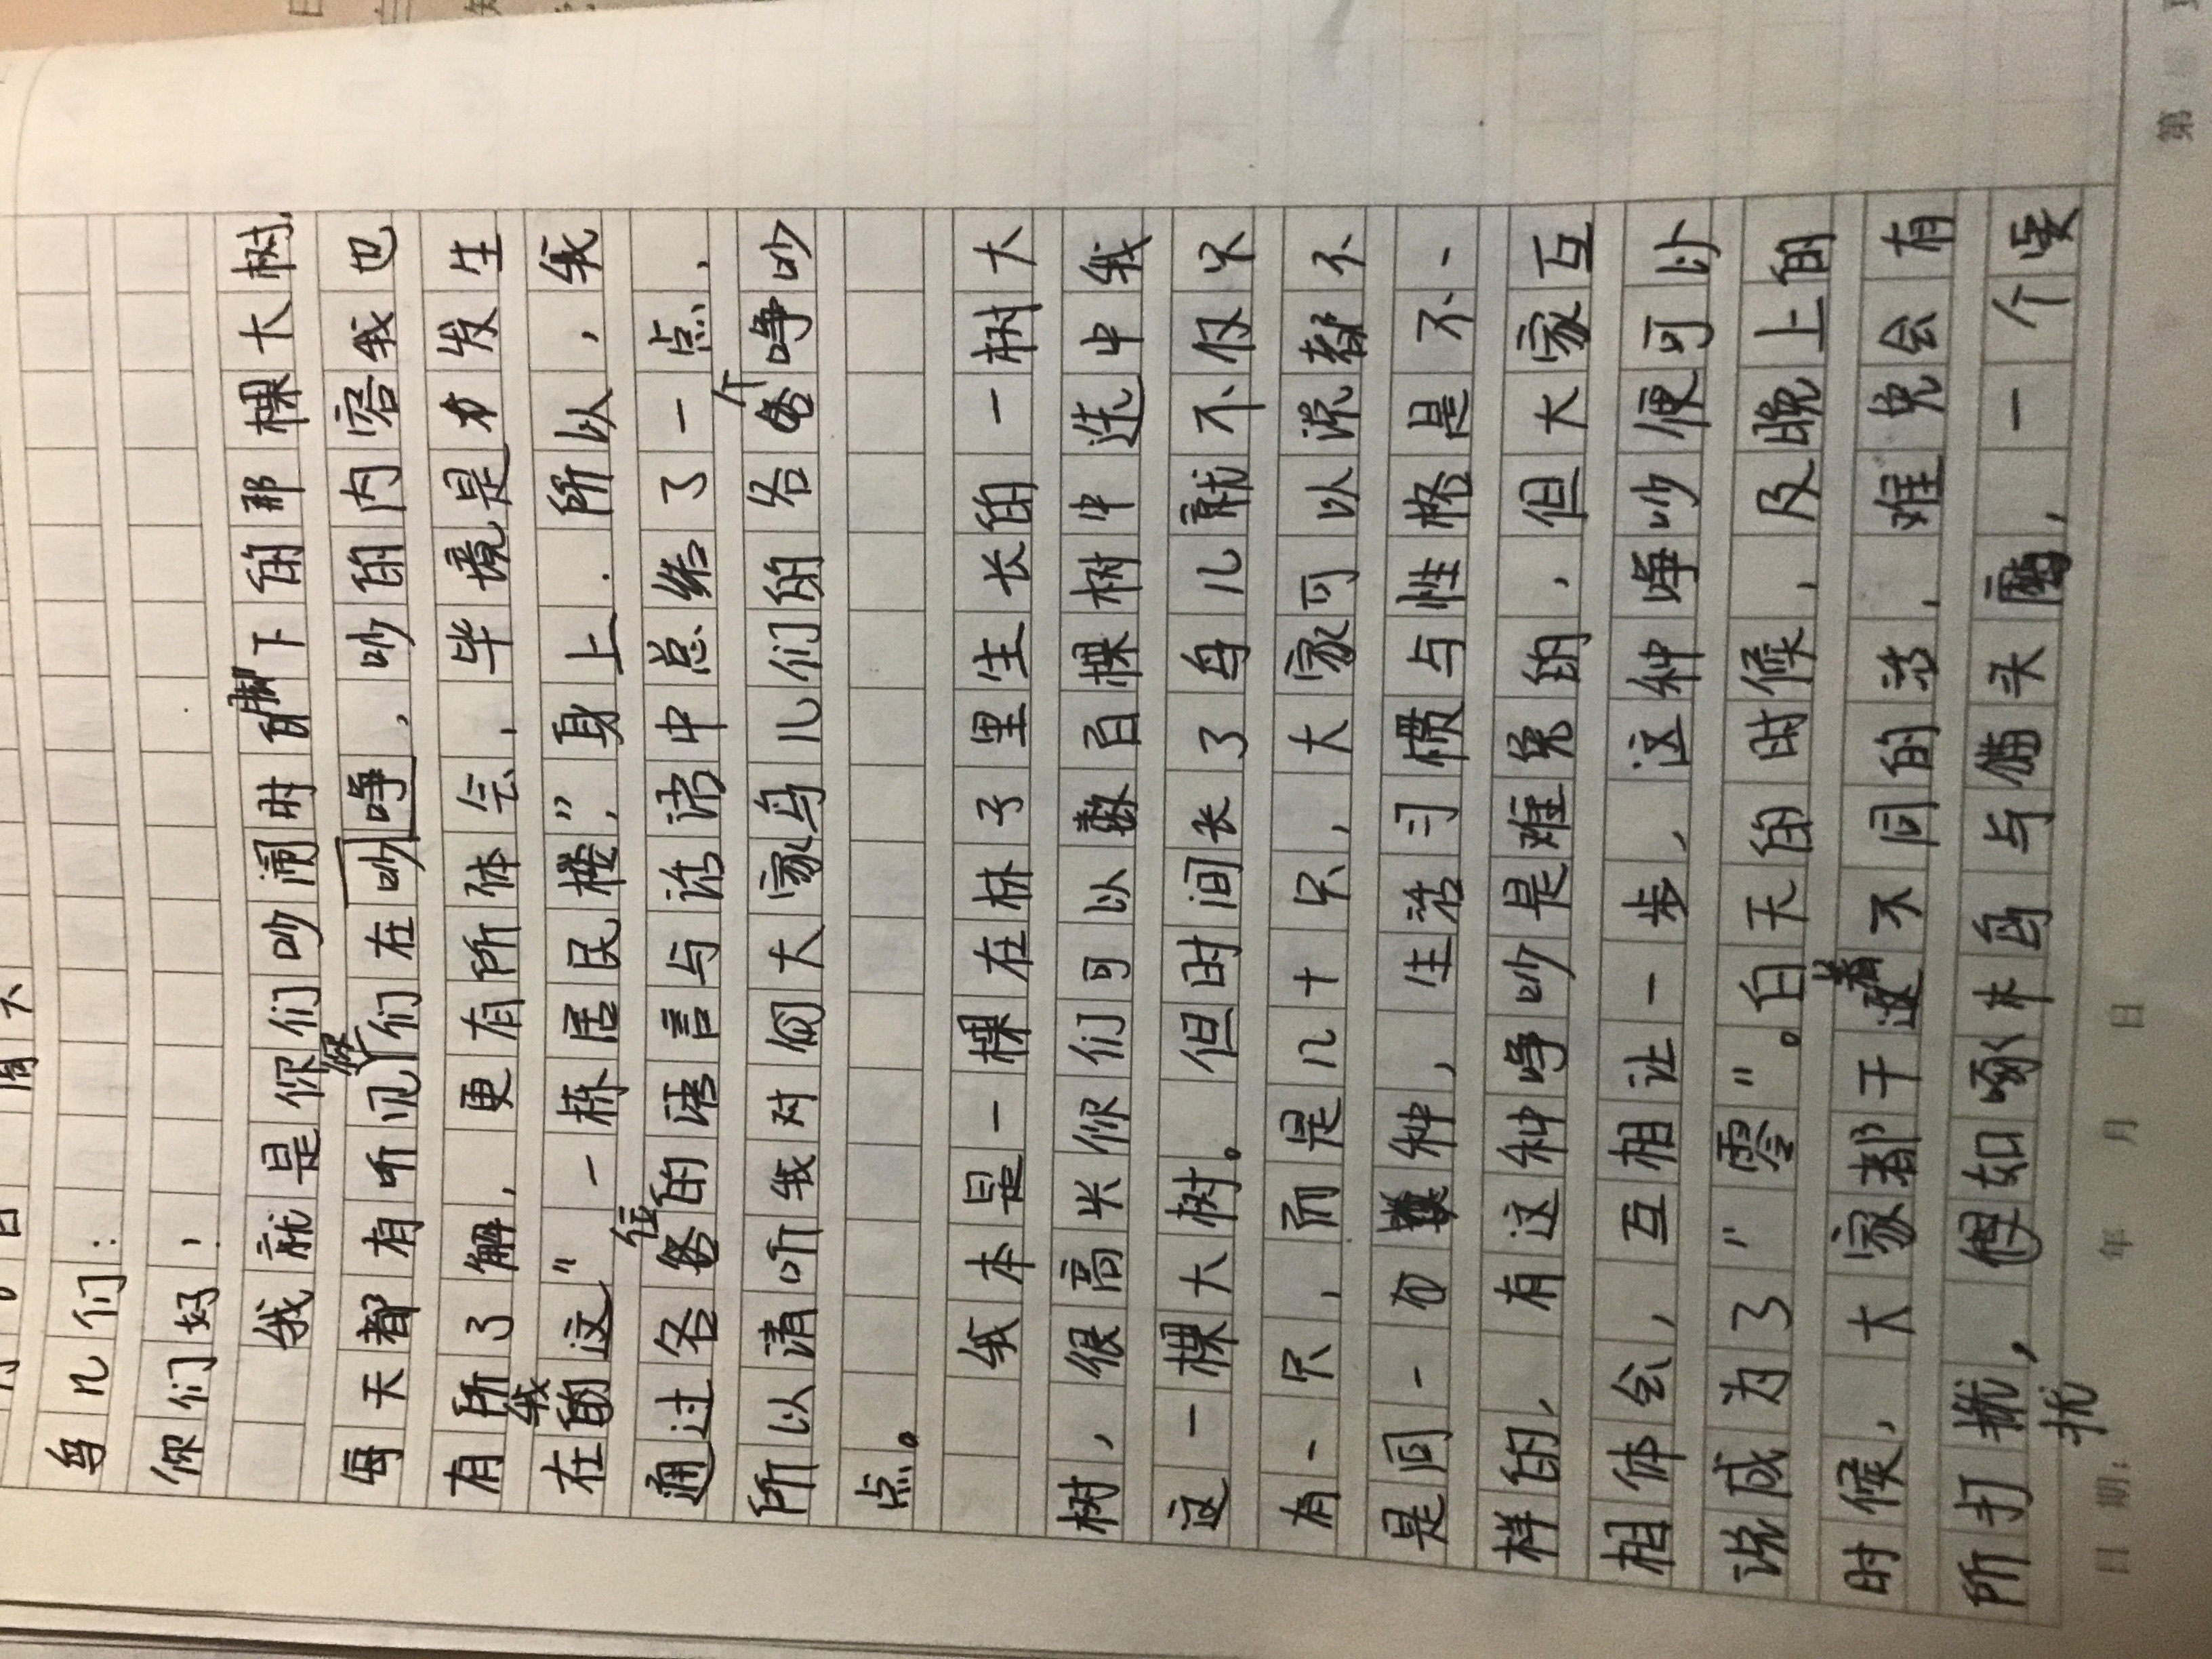 鸟儿们:
你们好!
我就是你们吵闹时脚下的那棵大树,
每天都有听见你们在吵争,吵的内容我也
有所了解,更有所体会,毕境是才发生
在我的这"一栋居民楼",身上.所以,我
通过各位的语言与话语中总结了一点,
所以请听我对何大家鸟儿们的各个争吵
点。
我本是一棵在林子里生长的一树大
树,很高兴你们可以数百棵树中选中我
这一棵大树。但时间长了鸟儿就不仅只
有一只,而是几十只,大家可以说都不
是同一种,生活习惯与性格是不一
样的,有这种争吵是难免的,但大家互
相体会,互相让一步,这种争吵便可以
说成为了"零"。白天的时候,及晚上的
时候,大家都干着不同的活,难免会有
所打扰,假如啄木鸟与猫头鹰,一个要
扰
日期: 年 月 日
第